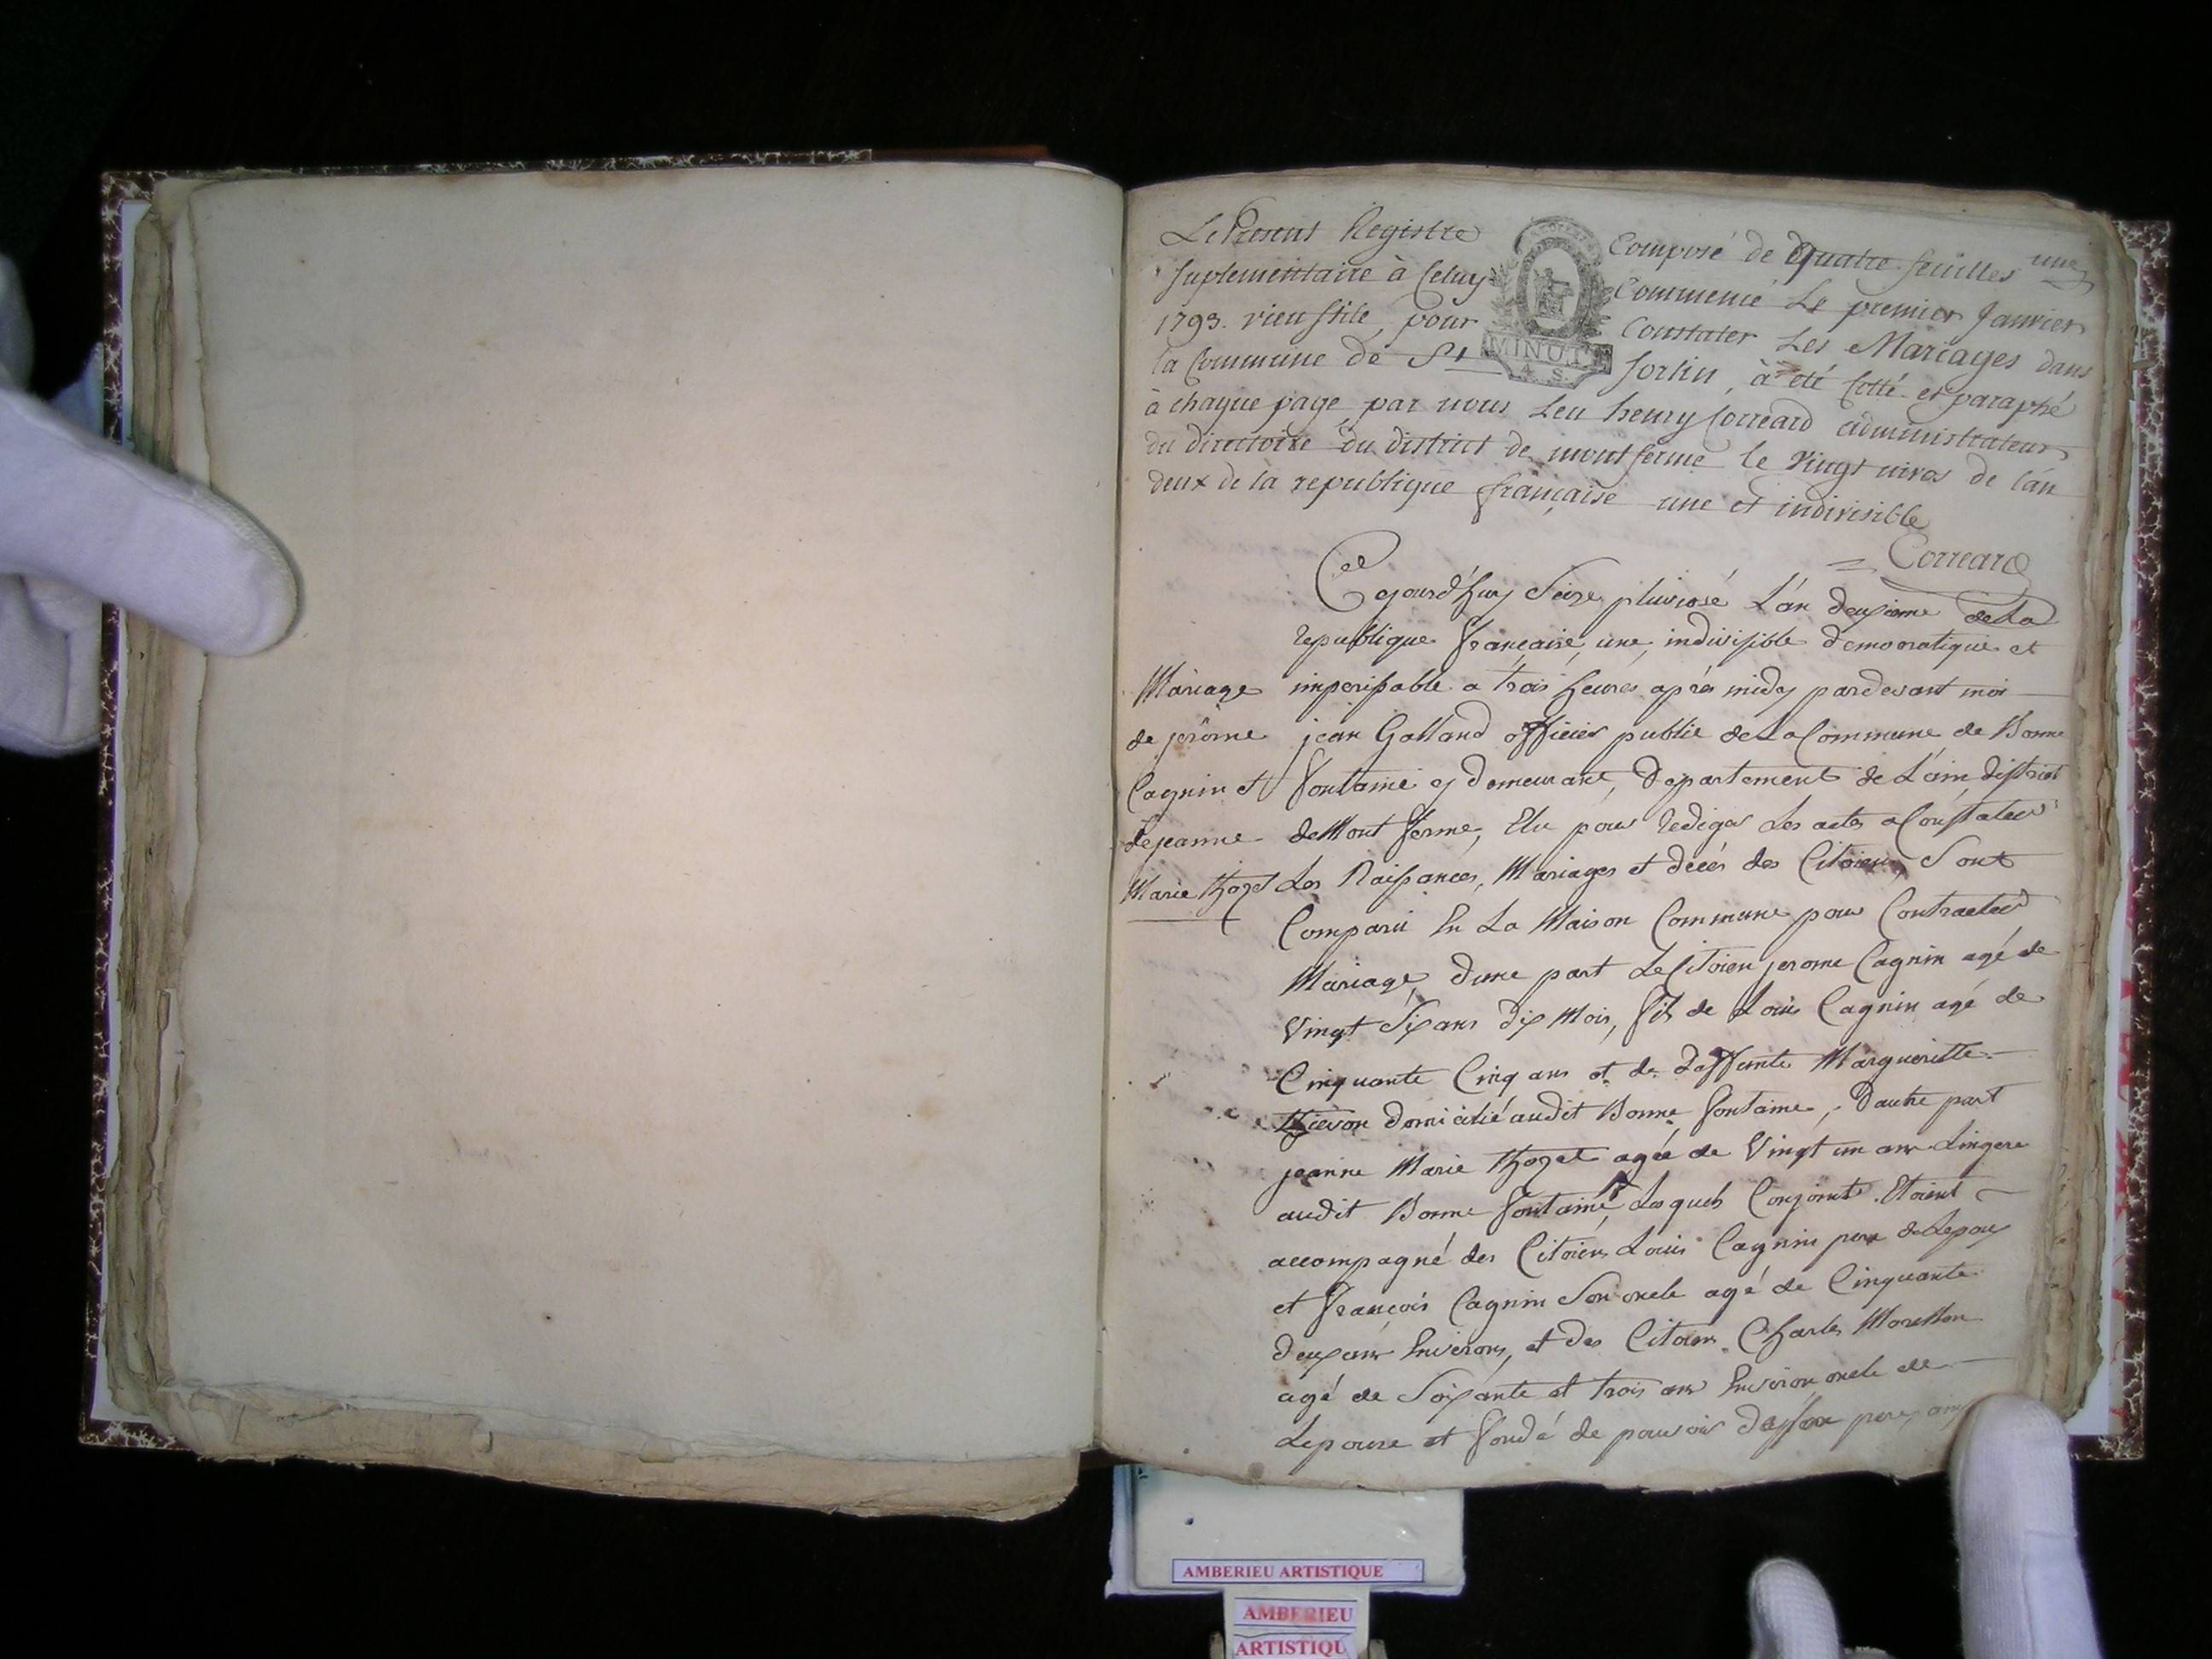 Le Present Registre Composé de Quatre feuilles une
suplementaire à Celuy Commencé Le premier Janvier
1793. vieu stile, pour Constater Les Mariages dans
la Commune de St Sorlin, à été Cotté et paraphé
à chaque page par nous Leu henry Correard administrateur
du directoire du district de montferme le vingt nivos de l'an
deux de la republique française une et indivisible
Correard
MINUTE
4. S.
Cejourd'huy Seize pluviose L'an deuxieme de La
republique francaise, une, indivisible democratique et
imperissable a trois heures après midy pardevant moi
jean Galland officier public de La Commune de Bonne
fontaine y demeurant, Departement de L'ain, district
de Mont ferme, Elu pour rediger Les actes a Constater
Les Naissances, Mariages et décès des Citoiens, Sont
Comparu En La Maison Commune pour Contracter
Mariage, d'une part Le Citoien jerome Cagnin agé de
Vingt Six ans dix Mois, fils de Louis Cagnin agé de
Cinquante Cinq ans et de deffunte Marguerittte
Thievon domicilié audit Bonne fontaine, d'autre part
jeanne Marie Thozet agée de Vingt un ans Lingere
audit Bonne fontaine, Lesquels Conjoints Etoient
accompagné des Citoiens Louis Cagnin pere de Lepoux
et françois Cagnin Son oncle agé de Cinquante
deux ans Environs, et des Citoiens Charles Morellon
agé de Soixante et trois ans Environ oncle de
Lepouse et fondé de pouvoir de pere,
Mariage
de jerôme
Cagnin et
de jeanne
Marie Thozet
AMBERIEU ARTISTIQUE
AMBERIEU
ARTISTIQU